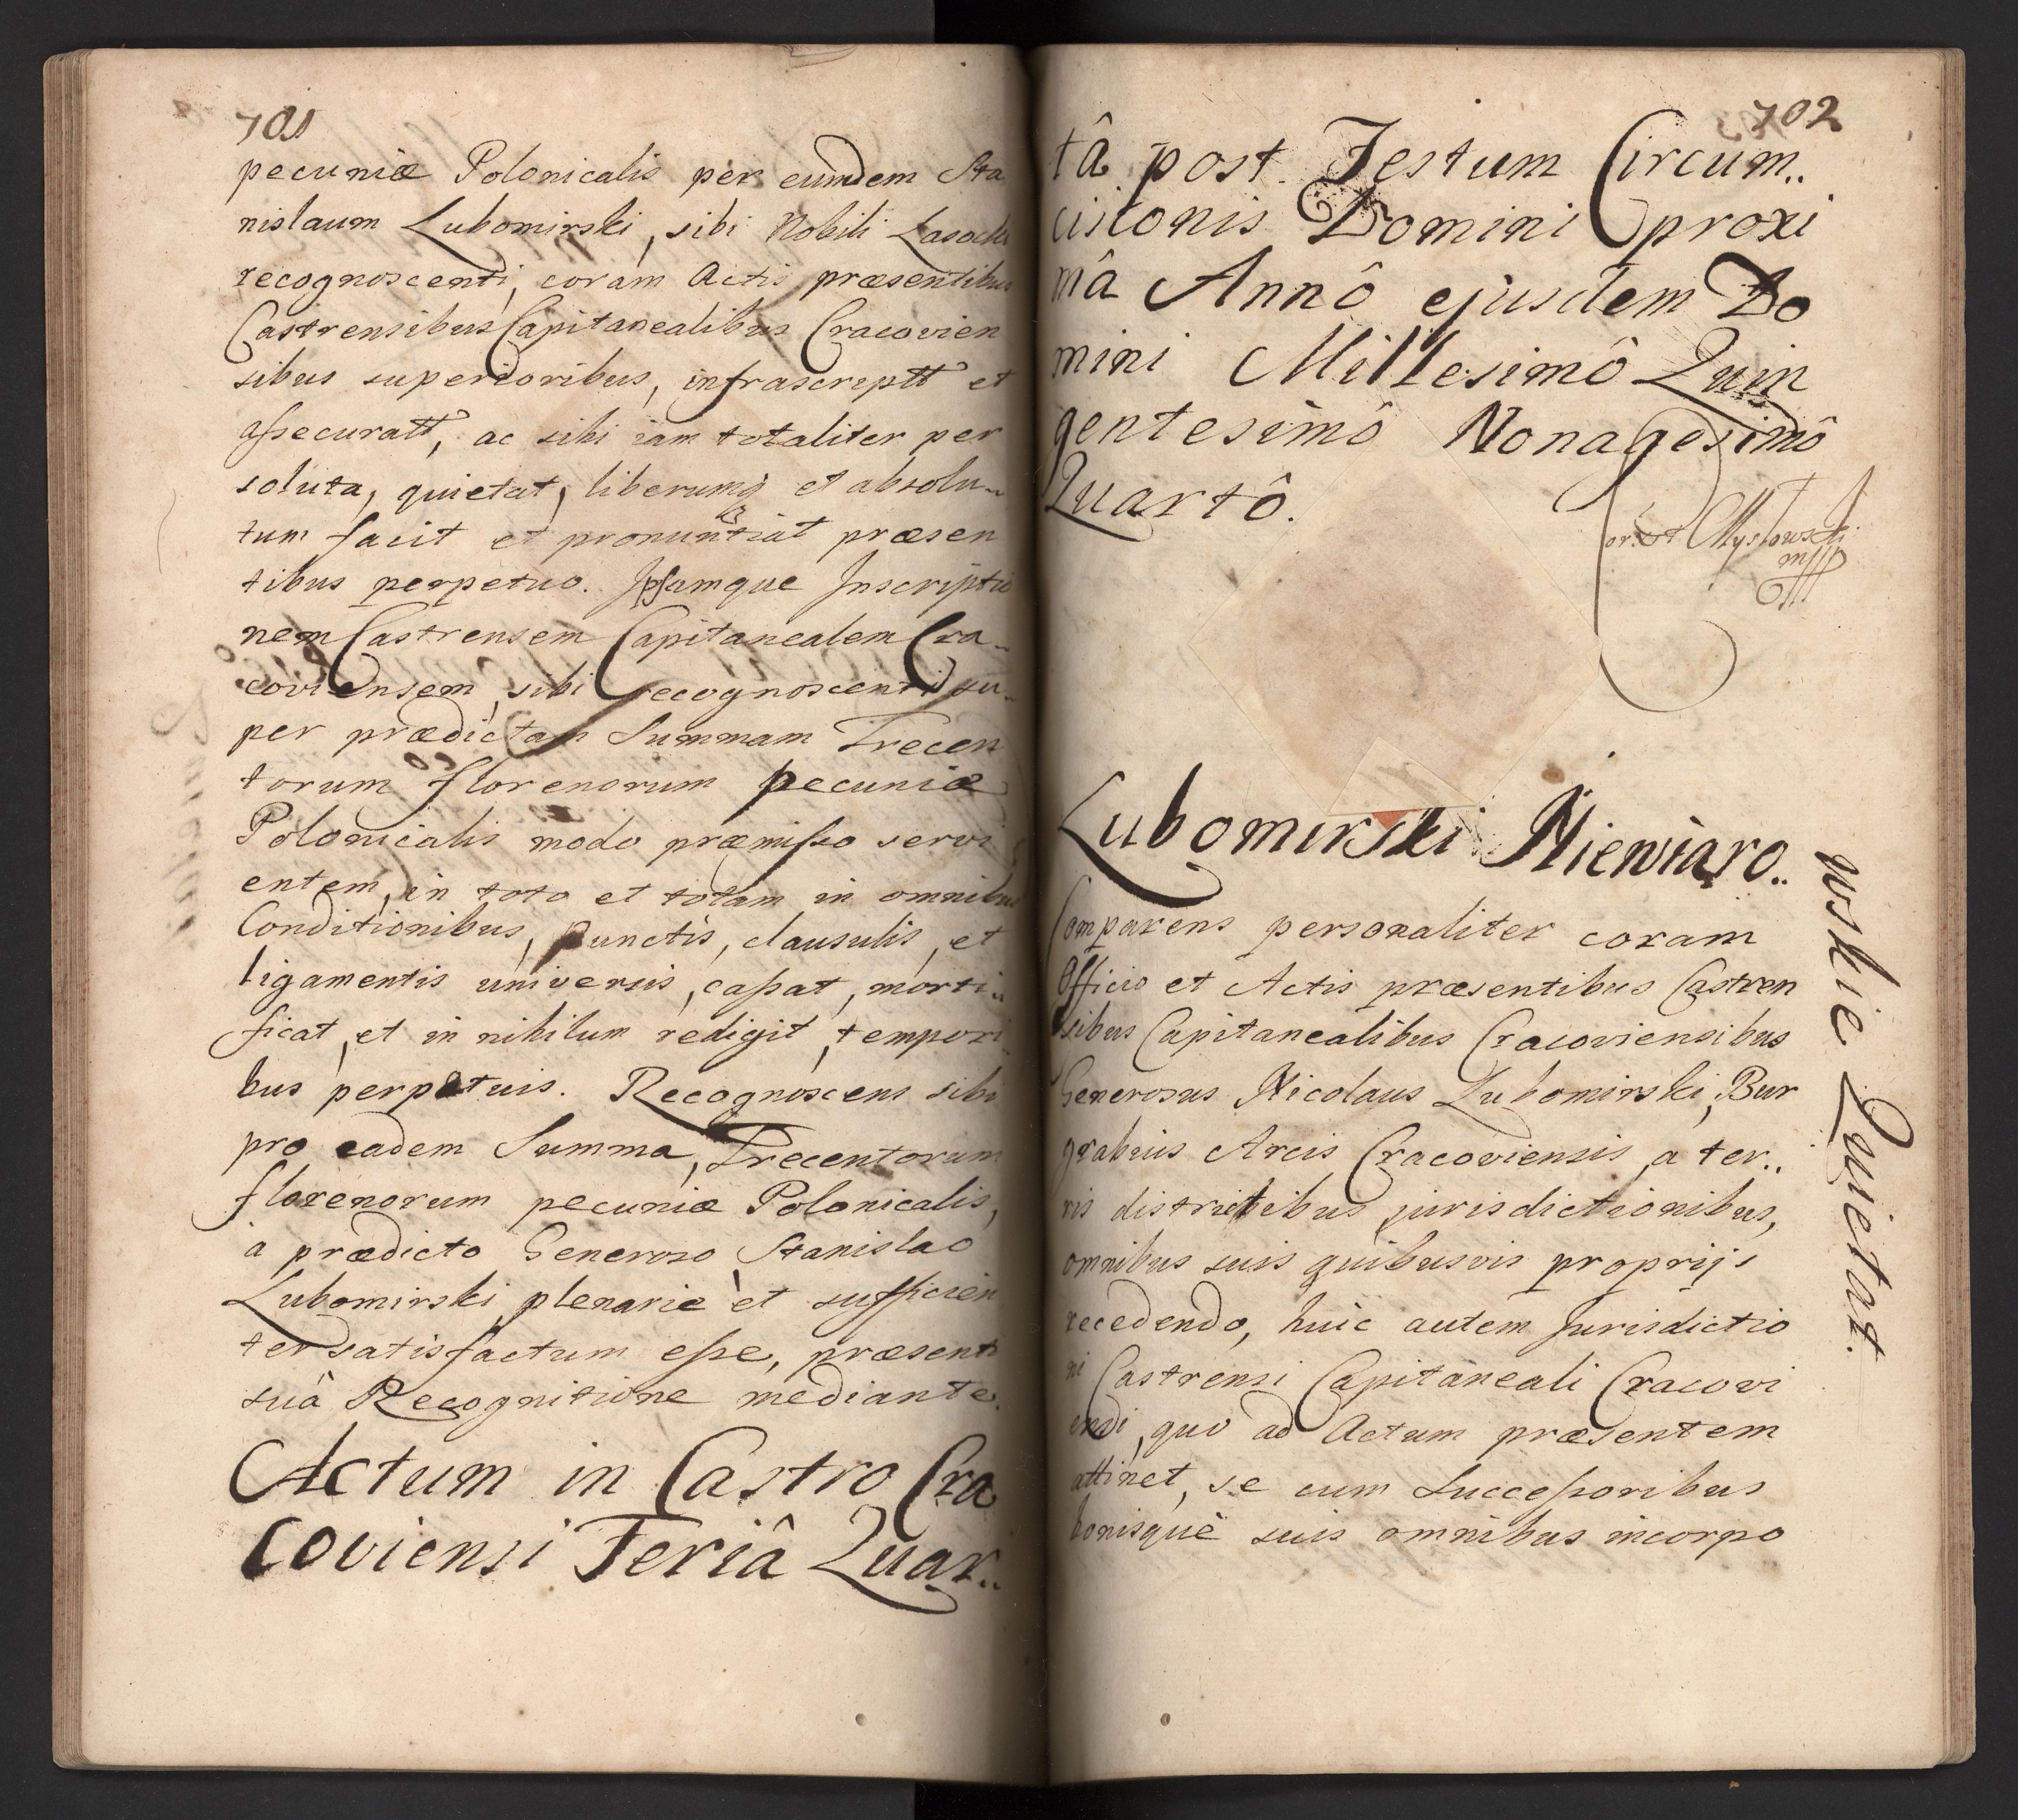 701
pecuniæ Polonicalis per eundem Sta
nislaum Lubomirski, sibi Nobili
recognoscenti, coram Actis præsentibus
Castrensibus Capitanealibus Cracovien
sibus superioribus, infrascriptt et
aſsecuratt, ac sibi iam totaliter per
soluta, quietat, liberumq et absolu..
tum facit et pronuntiat præsen
tibus perpetuo. Ipsamque Inscriptio
nem Castrensem Capitanealem Cra..
coviensem, sibi recognoscenti su..
per prædictam Summam Trecen
torum florenorum pecuniæ
Polonicalis modo præmiſso servi
entem, in toto et totam in omnibus
Conditionibus, punctis, clausulis, et
ligamentis universis, caſsat, morti..
ficat, et in nihilum redigit, tempori
bus perpetuis. Recognoscens sibi
pro eadem Summa, Trecentorum
florenorum pecuniæ Polonicalis,
à prædicto Generoso Stanislao
Lubomirski, plenarie et sufficien
ter satisfactum eſse, præsenti
suâ Recognitione mediante.
Actum in Castro Cra
coviensi Feriâ Quar..
702
tâ post Festum Circum..
cisionis Domini proxi
mâ Annô ejusdem Do
mini Millesimô Quin
gentesimô Nonagesimô
Quartô.
Lubomirski Niewiaro..
wskie Quietat.
Comparens personaliter coram
Officio et Actis præsentibus Castren
sibus Capitanealibus Cracoviensibus
Generosus Nicolaus Lubomirski, Bur
grabius Arcis Cracoviensis, a ter..
ris districtibus jurisdictionibus,
omnibus suis quibusvis proprijs
recedendo, huic autem Jurisdictio
ni Castrensi Capitaneali Cracovi
ensi, quo ad Actum præsentem
attinet, se cum Succeſsoribus
bonisque suis omnibus incorpo